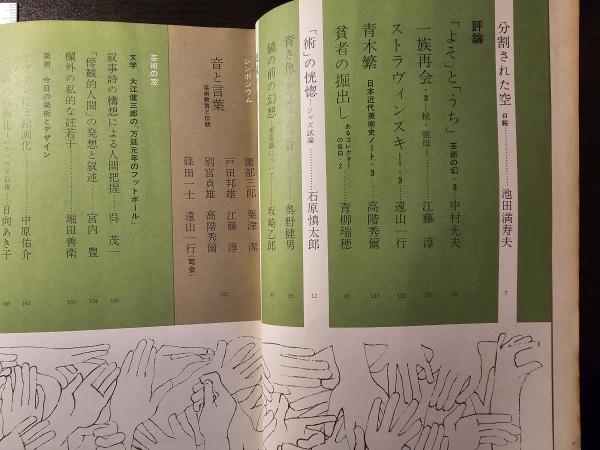 分割された空 日録 池田満寿夫 7
評論
「よそ」と「うち」 芸術の幻・3 中村光夫 78
一族再会・3 ―続・祖母― 江藤 淳 102
ストラヴィンスキー・3 遠山一行 122
青木繁 日本近代美術史ノート・3 高階秀爾 132
貧者の掘出し あるコレクターの告白・2 青柳瑞穂 92
「術」の恍惚 ―ジャズ試論― 石原慎太郎 12
青き魚 奥野健男 29
鏡の前の幻想 坂崎乙郎 40
シンポジウム
音と言葉 芸術教育と伝統
園部三郎 粟津 潔
戸田邦雄 江藤 淳
別宮貞雄 高階秀爾
篠田一士 遠山一行(司会)
芸術の窓
文学 大江健三郎の「万延元年のフットボール」
叙事詩の構想による人間把握 呉 茂一 150
「傍観的人間」の発想と叙述 宮内 豊 154
欄外の私的な註若干 堀田善衛 157
美術 今日の美術とデザイン
絵画化 中原佑介 162
日向あき子 165